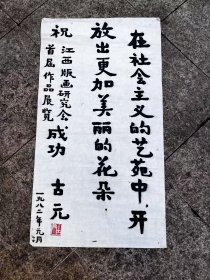 在社会主义的艺苑中，开
放出更加美丽的花朵.
祝江西版画研究会
首届作品展览成功
古元
一九八二年元月